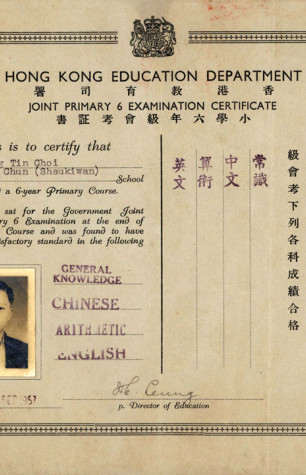 HONG KONG EDUCATION DEPARTMENT
署司育教港香
JOINT PRIMARY 6 EXAMINATION CERTIFICATE
書証考會級年六學小
s is to certify that
g Tin Choi
Chun (Shaukiwan)
School
d a 6-year Primary Course.
sat for the Government Joint
y 6 Examination at the end of
Course and was found to have
isfactory standard in the following
GENERAL
KNOWLEDGE
CHINESE
ARITHMETIC
ENGLISH
級會考下列各科成績合格
常識
中文
算術
英文
1957
p. Director of Education